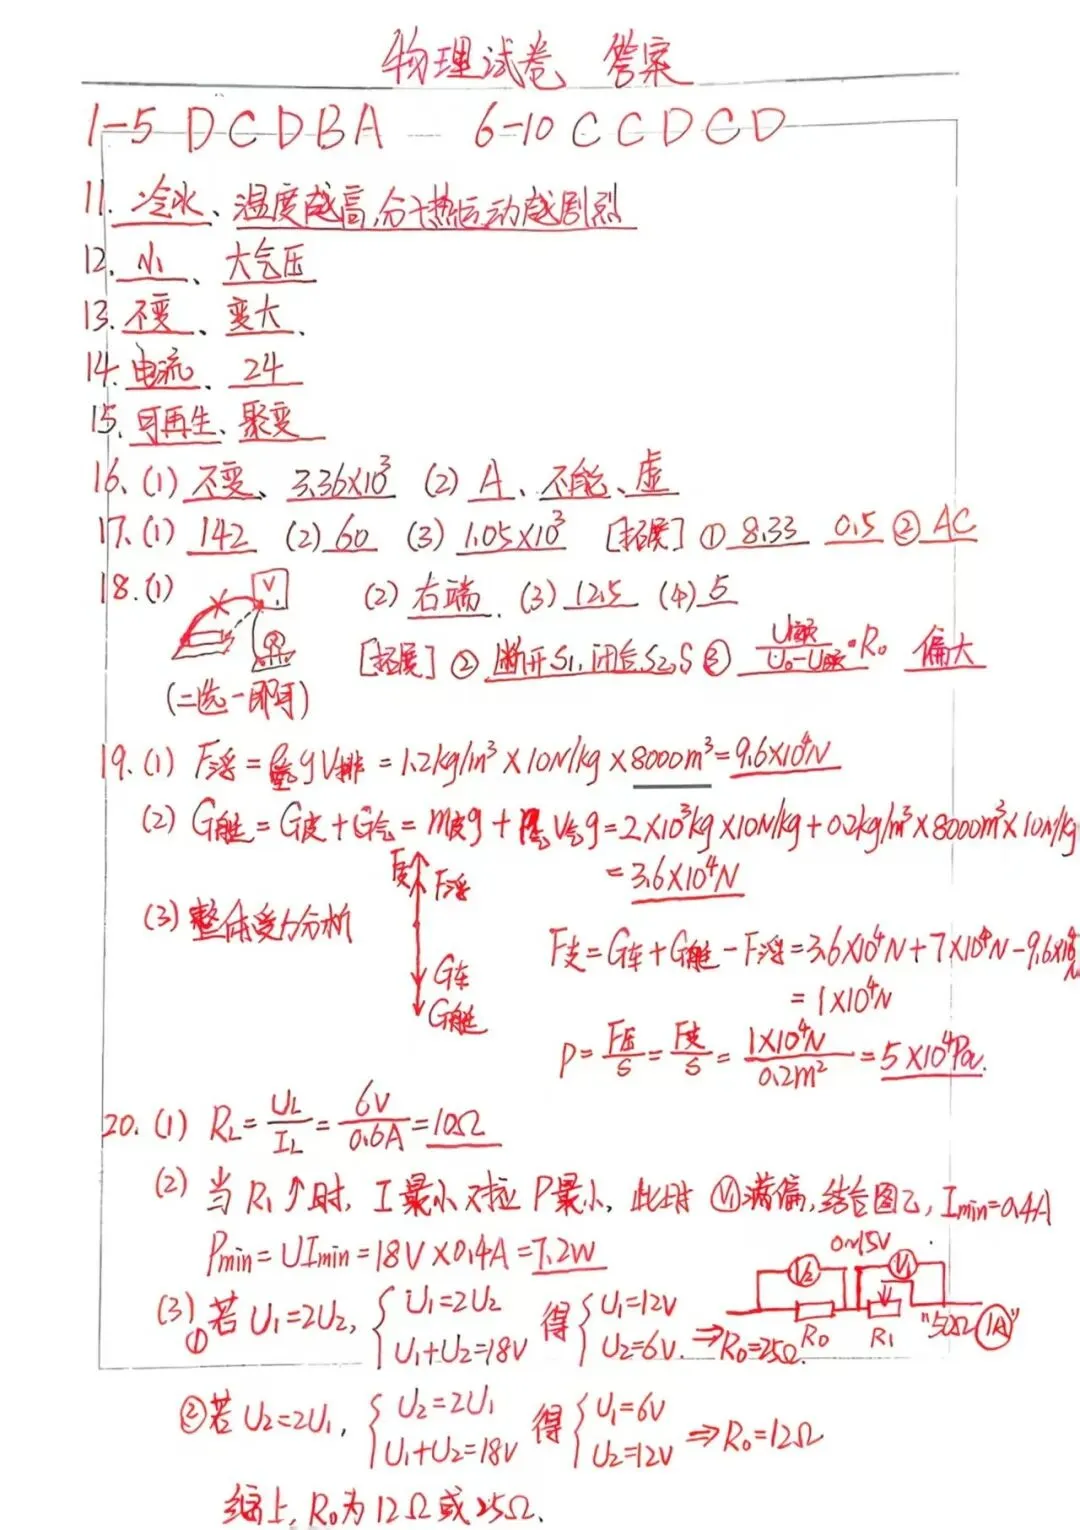 物理试卷 答案
1-5 DCDBA 6-10 CCDCD
11. 冷水、温度越高,分子热运动越剧烈
12. 小、大气压
13. 不变、变大.
14. 电流、24
15. 可再生、聚变
16. (1) 不变、3.36×10³ (2) A、不能、虚
17. (1) 142 (2) 60 (3) 1.05×10³ [拓展] ① 8.33 0.5 ② AC
18. (1) V (2) 右端. (3) 12.5 (4) 5
[拓展] ② 断开S₁,闭合S₂,S ③ U/(U₀-U)·R₀ 偏大
(二选一即可)
19. (1) F浮=ρ空gV排=1.2kg/m³×10N/kg×8000m³=9.6×10⁴N
(2) G艇=G皮+G气=m皮g+ρ气V气g=2×10³kg×10N/kg+0.2kg/m³×8000m³×10N/kg
=3.6×10⁴N
F支 F浮
(3) 整体受力分析
G车
G艇
F支=G车+G艇-F浮=3.6×10⁴N+7×10⁴N-9.6×10⁴N
=1×10⁴N
P=F压/S=F支/S=1×10⁴N/0.2m²=5×10⁴Pa.
20. (1) RL=UL/IL=6V/0.6A=10Ω
(2) 当R₁↑时, I最小对应P最小, 此时 V₁满偏,结合图乙, Imin=0.4A
Pmin=UImin=18V×0.4A=7.2W
0~15V
V₂ V₁
R₀ R₁ "50Ω 1A"
(3) ① 若U₁=2U₂, { U₁=2U₂ U₁+U₂=18V 得 { U₁=12V U₂=6V. ⇒R₀=25Ω.
② 若U₂=2U₁, { U₂=2U₁ U₁+U₂=18V 得 { U₁=6V U₂=12V ⇒R₀=12Ω
综上, R₀为12Ω或25Ω.